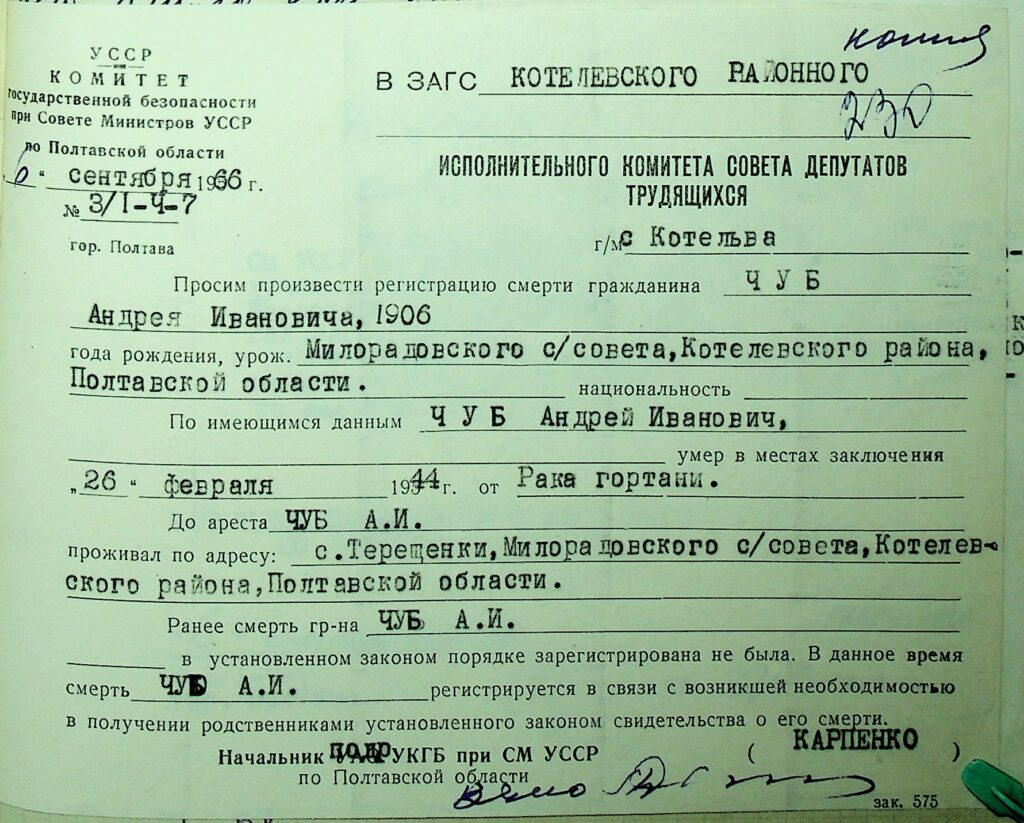 копия
УССР
КОМИТЕТ
государственной безопасности
при Совете Министров УССР
по Полтавской области
6 " сентября 1966 г.
№ 3/I-Ч-7
гор. Полтава
В ЗАГС КОТЕЛЕВСКОГО РАЙОННОГО
ИСПОЛНИТЕЛЬНОГО КОМИТЕТА СОВЕТА ДЕПУТАТОВ
ТРУДЯЩИХСЯ
г/м с Котельва
Просим произвести регистрацию смерти гражданина ЧУБ
Андрея Ивановича, 1906
года рождения, урож. Милорадовского с/совета,Котелевского района,
Полтавской области. национальность
По имеющимся данным ЧУБ Андрей Иванович,
умер в местах заключения
„26 " февраля 1944 г. от Рака гортани.
До ареста ЧУБ А.И.
проживал по адресу: с.Терещенки,Милорадовского с/совета,Котелев-
ского района,Полтавской области.
Ранее смерть гр-на ЧУБ А.И.
в установленном законом порядке зарегистрирована не была. В данное время
смерть ЧУБ А.И. регистрируется в связи с возникшей необходимостью
в получении родственниками установленного законом свидетельства о его смерти.
Начальник УКГБ при СМ УССР ( КАРПЕНКО )
по Полтавской области
зак. 575